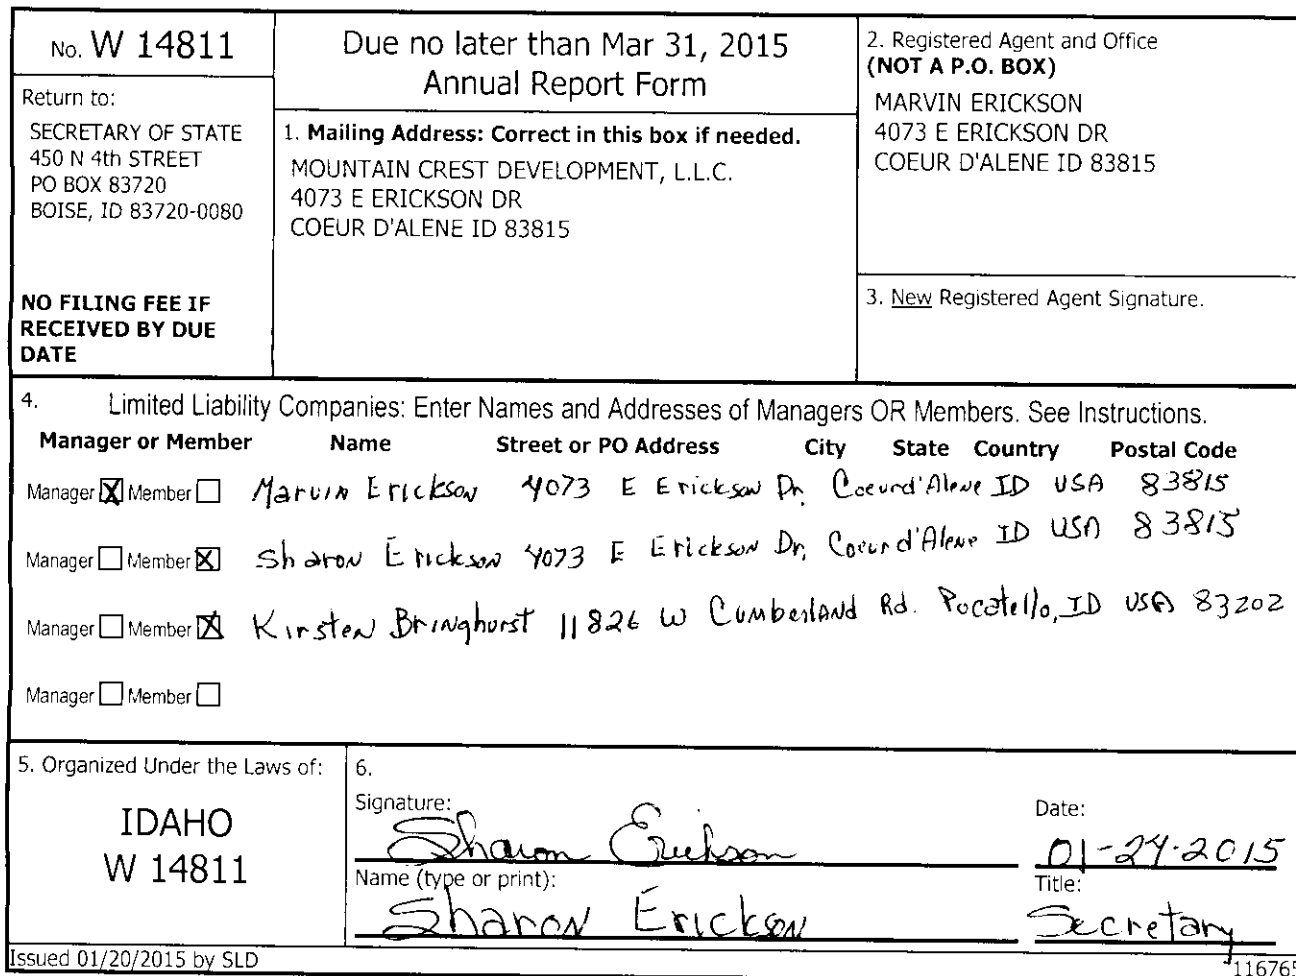 No. W 14811
Return to:
SECRETARY OF STATE
450 N 4th STREET
PO BOX 83720
BOISE, ID 83720-0080
NO FILING FEE IF
RECEIVED BY DUE
DATE
Due no later than Mar 31, 2015
Annual Report Form
1. Mailing Address: Correct in this box if needed.
MOUNTAIN CREST DEVELOPMENT, L.L.C.
4073 E ERICKSON DR
COEUR D'ALENE ID 83815
2. Registered Agent and Office
(NOT A P.O. BOX)
MARVIN ERICKSON
4073 E ERICKSON DR
COEUR D'ALENE ID 83815
3. New Registered Agent Signature.
4. Limited Liability Companies: Enter Names and Addresses of Managers OR Members. See Instructions.
Manager or Member Name Street or PO Address City State Country Postal Code
Manager X Member Marvin Erickson 4073 E Erickson Dr. Coeur d'Alene ID USA 83815
Manager Member X Sharon Erickson 4073 E Erickson Dr, Coeur d'Alene ID USA 83815
Manager Member X Kirsten Bringhurst 11826 W Cumberland Rd. Pocatello, ID USA 83202
Manager Member
5. Organized Under the Laws of:
IDAHO
W 14811
6.
Signature:
Sharon Erickson
Date:
01-24-2015
Name (type or print):
Sharon Erickson
Title:
Secretary
Issued 01/20/2015 by SLD
116765